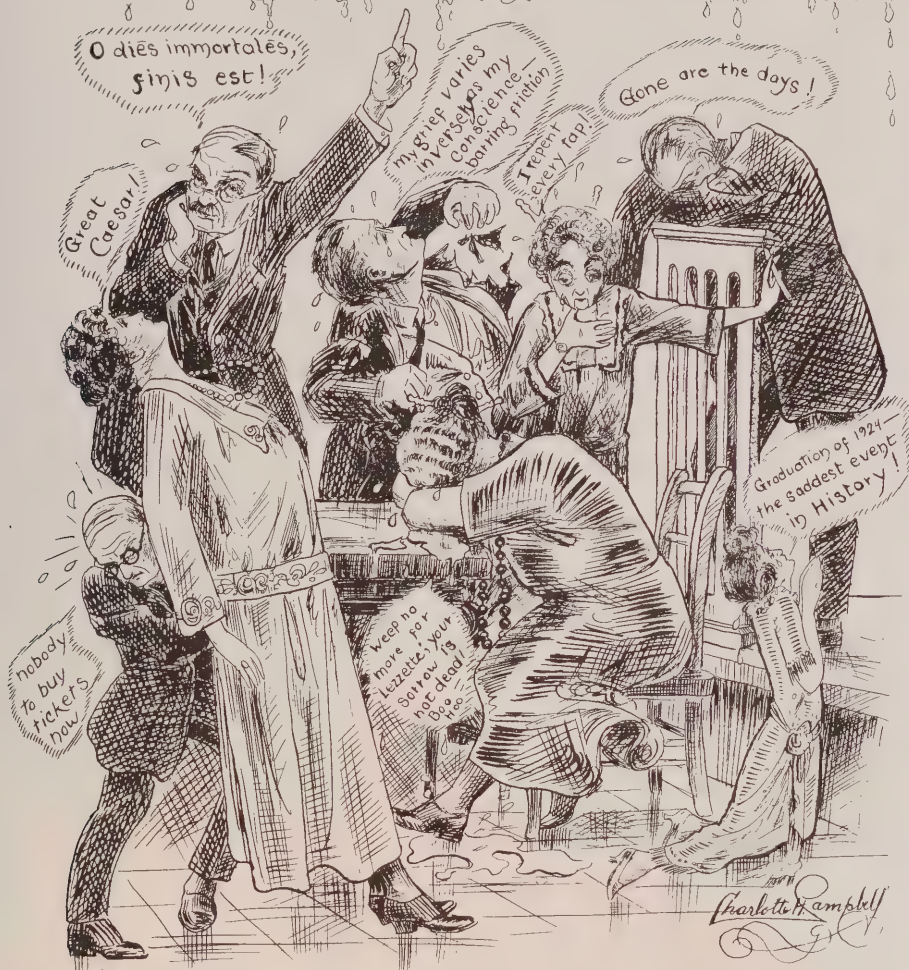 O diēs immortalēs,
finis est!
my grief varies
inversely as my
conscience—
barring friction
I repent
every rap!
Gone are the days!
Great
Caesar!
Graduation of 1924—
the saddest event
in History!
nobody
to buy
tickets
now
weep no
more for
lezzette, your
sorrow is
not dead.
Boo
Hoo
Charlotte H. Campbell